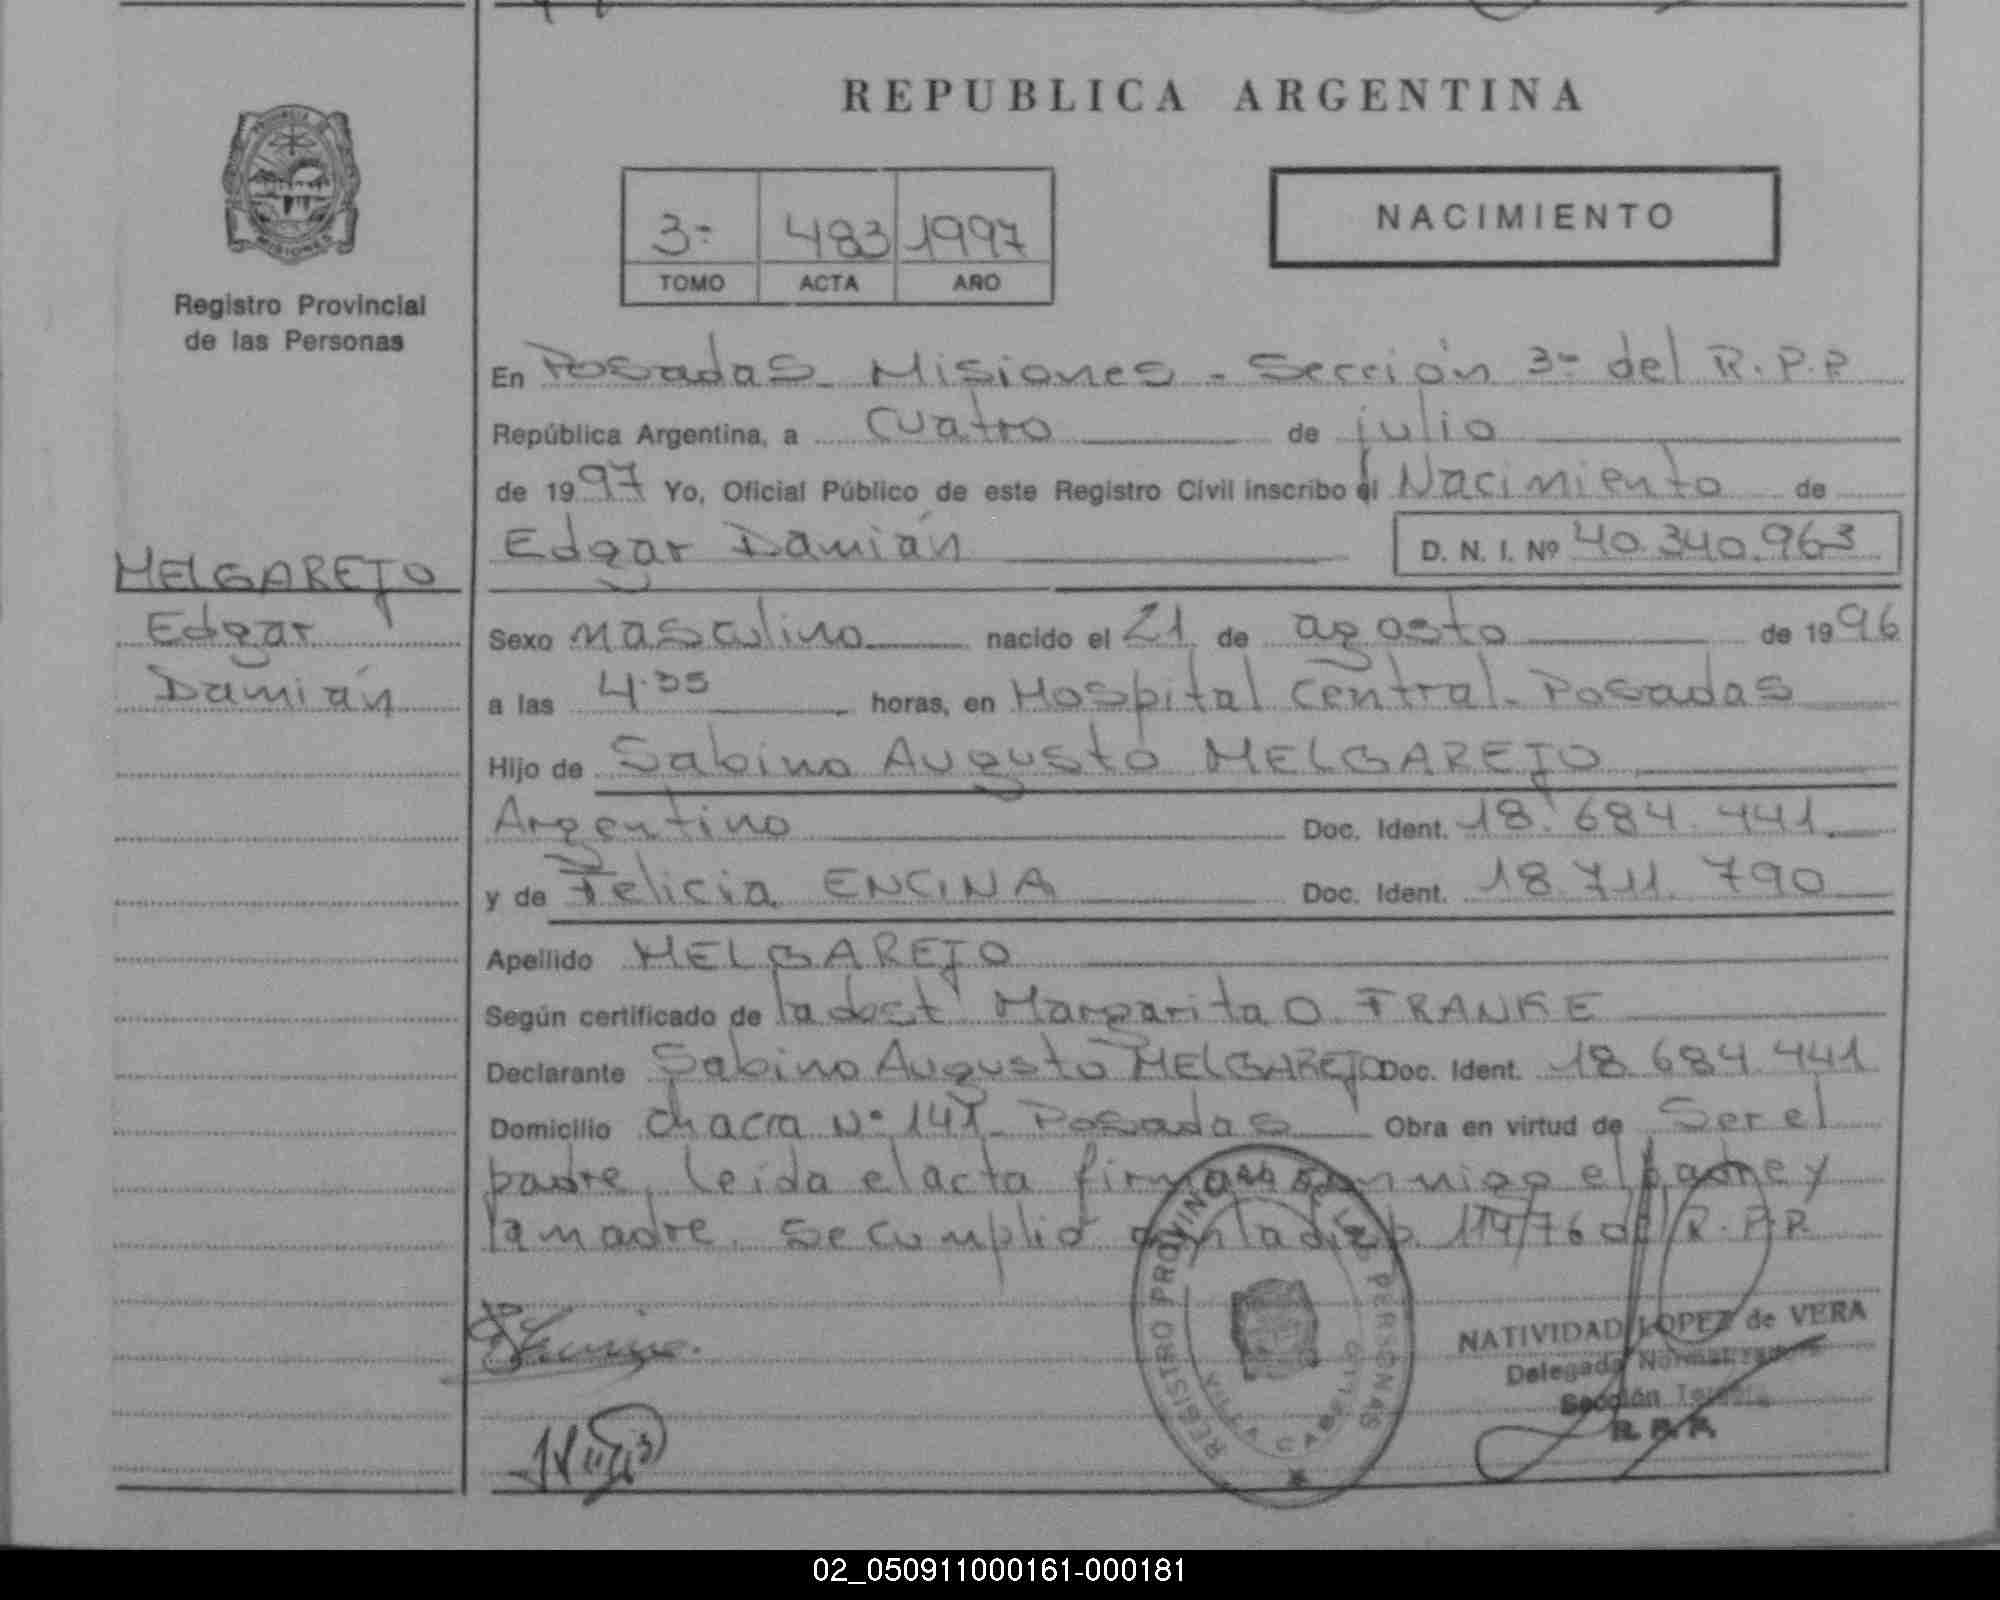 REPUBLICA ARGENTINA
PROVINCIA
MISIONES
Registro Provincial
de las Personas
3= 483 1997
TOMO ACTA AÑO
NACIMIENTO
En Posadas - Misiones - Sección 3= del R.P.P
República Argentina, a cuatro de julio
de 1997 Yo, Oficial Público de este Registro Civil inscribo el Nacimiento de
Edgar Damián D. N. I. Nº 40.340.963
MELGAREJO
Edgar
Damián
Sexo masculino nacido el 21 de agosto de 1996
a las 4.35 horas, en Hospital Central - Posadas
Hijo de Sabino Augusto MELGAREJO
Argentino Doc. Ident. 18.684.441
y de Felicia ENCINA Doc. Ident. 18.711.790
Apellido MELGAREJO
Según certificado de la obst Margarita O. FRANKE
Declarante Sabino Augusto MELGAREJO Doc. Ident. 18.684.441
Domicilio chacra Nº 141 - Posadas Obra en virtud de Ser el
padre, leída el acta firman conmigo el padre y
la madre. Se cumplió con la disp. 114/76 del R.P.P.
REGISTRO PROVINCIAL DE LAS PERSONAS
NATIVIDAD LOPEZ de VERA
Delegada Normalizadora
Sección Tercera
R. P. P.
02_050911000161-000181